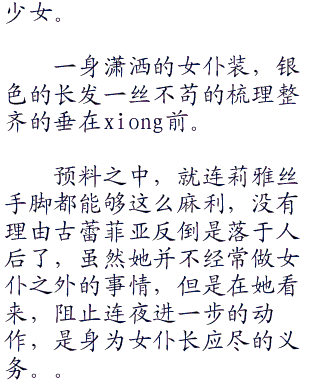 少女。
一身潇洒的女仆装，银
色的长发一丝不苟的梳理整
齐的垂在xiong前。
预料之中，就连莉雅丝
手脚都能够这么麻利，没有
理由古蕾菲亚反倒是落于人
后了，虽然她并不经常做女
仆之外的事情，但是在她看
来，阻止连夜进一步的动
作，是身为女仆长应尽的义
务。。